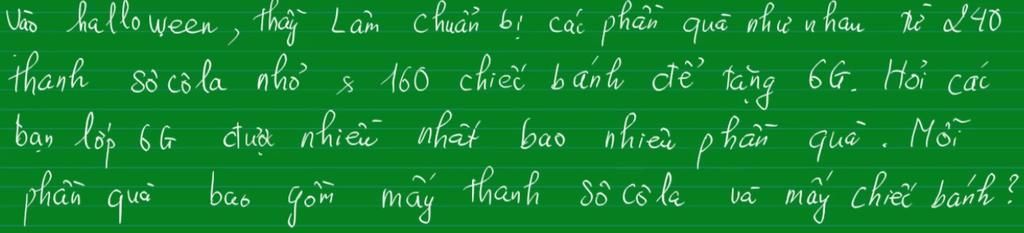 Vào halloween, thầy Lâm chuẩn bị các phần quà như nhau từ 240
thanh sôcôla nhỏ & 160 chiếc bánh để tặng 6G. Hỏi các
bạn lớp 6G được nhiều nhất bao nhiêu phần quà. Mỗi
phần quà bao gồm mấy thanh sôcôla và mấy chiếc bánh?